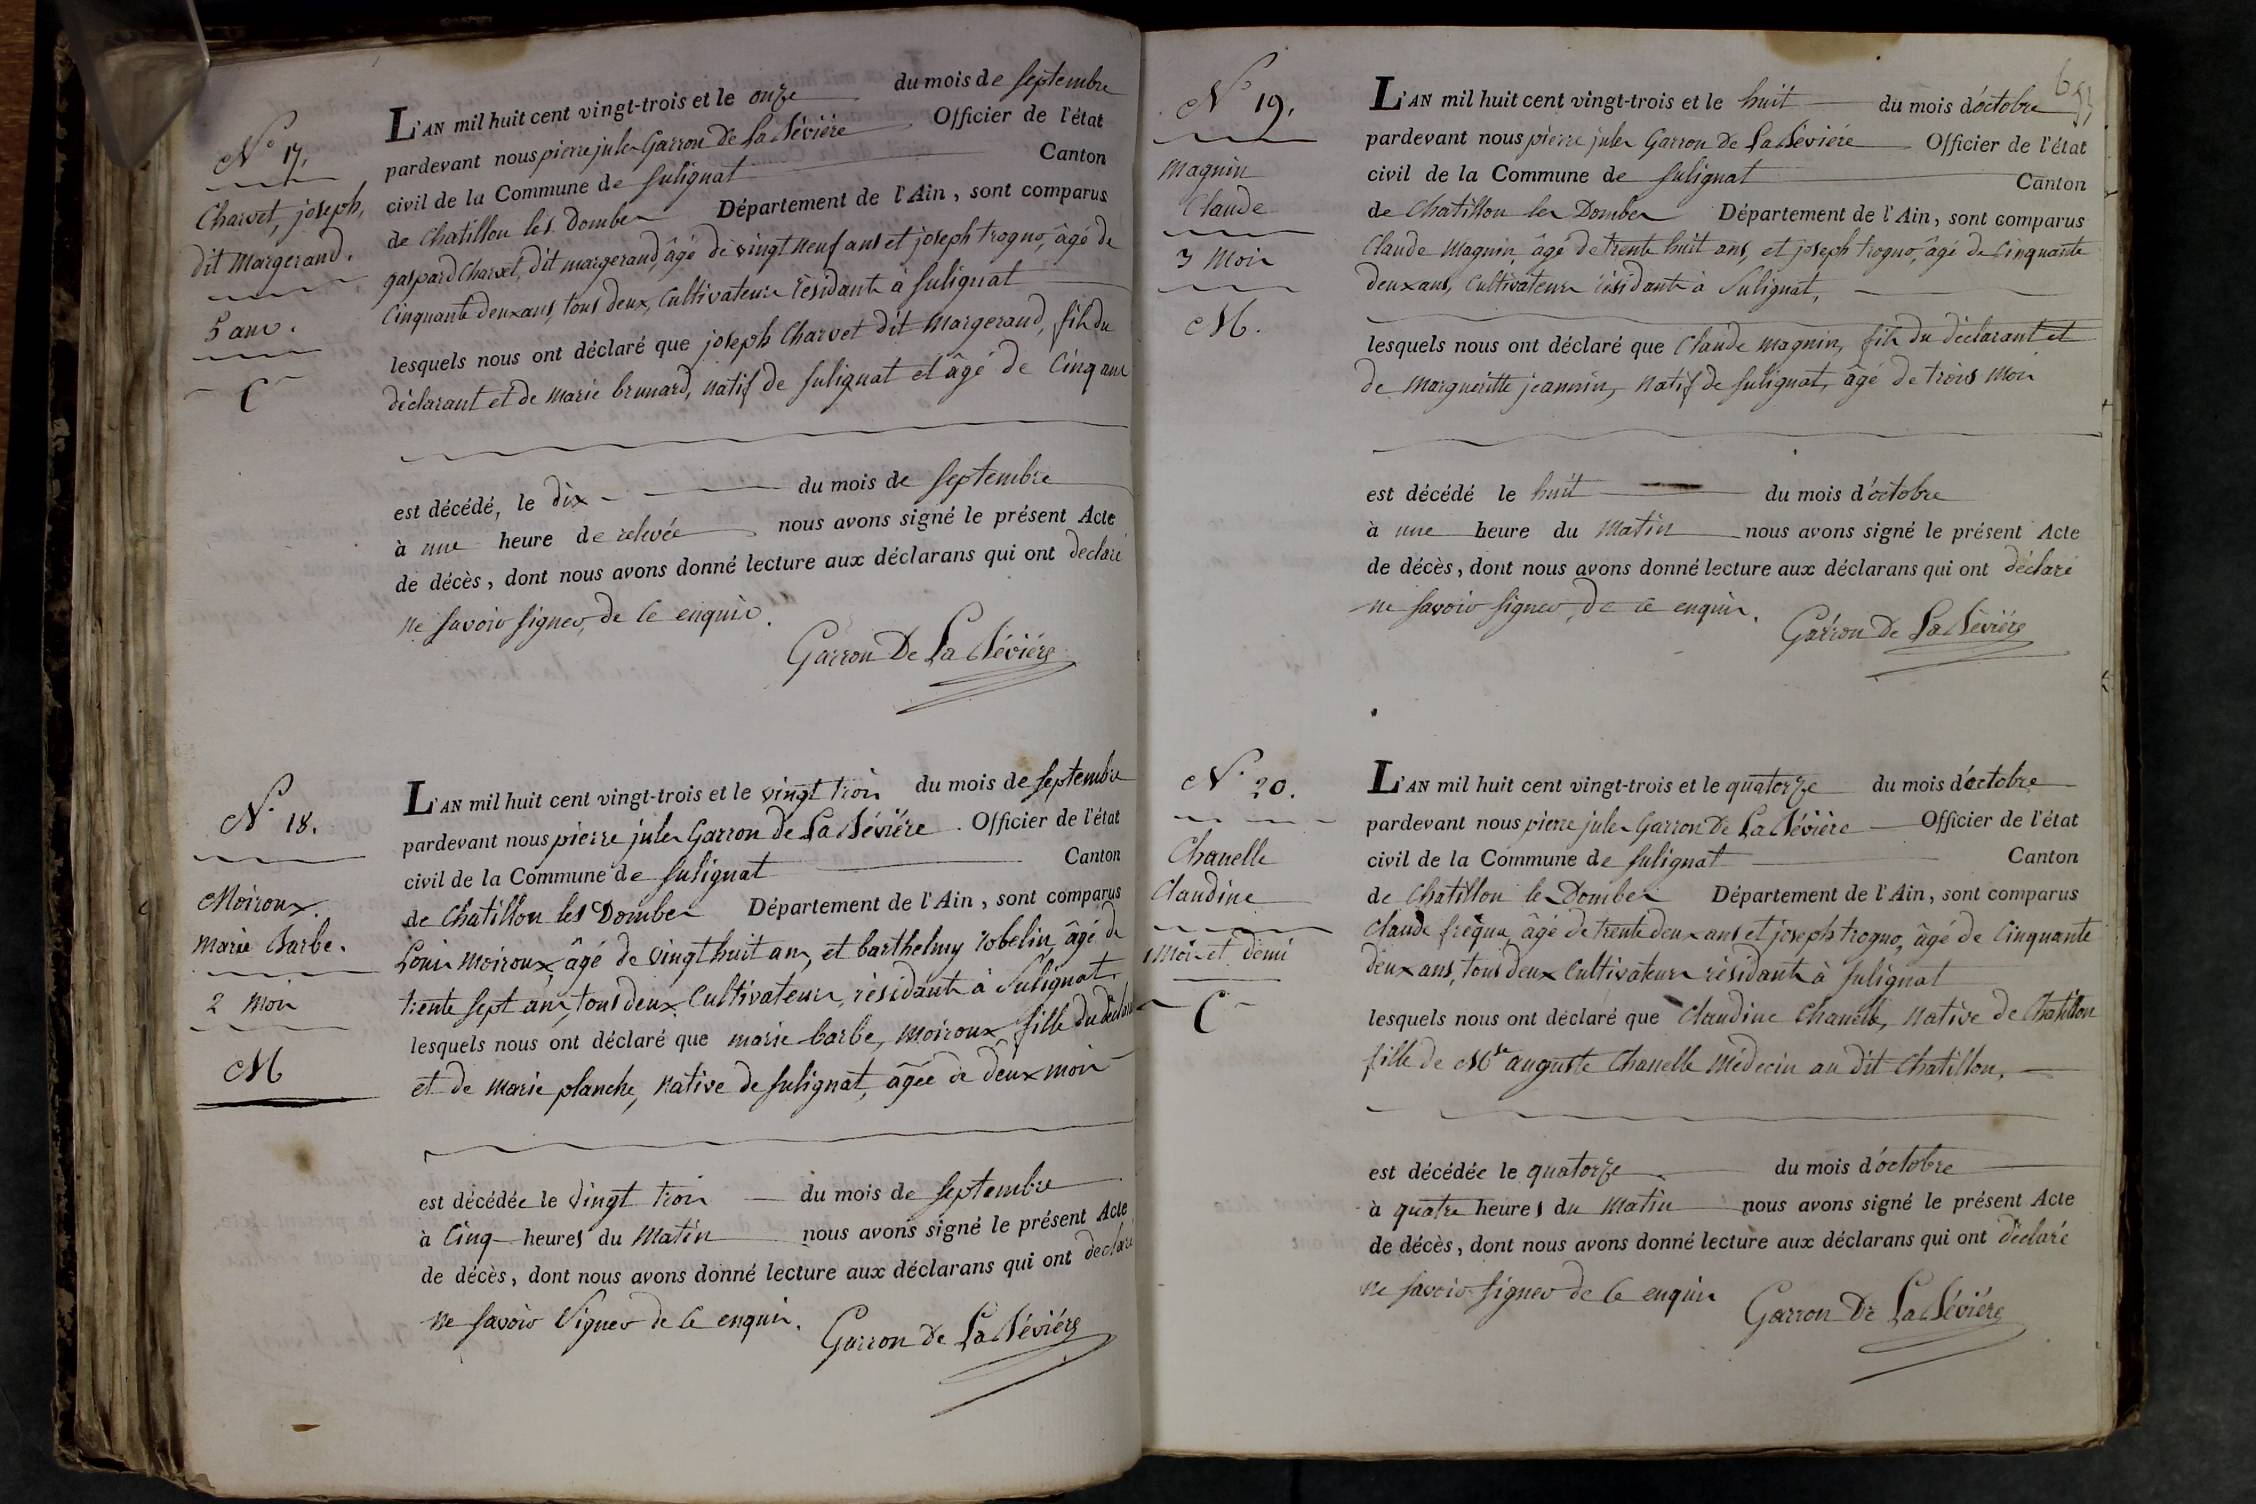 N° 17.
Charvet, joseph,
dit Margerand.
5 ans.
C
L'AN mil huit cent vingt-trois et le onze du mois de septembre
pardevant nous pierre jules Garron de La Sévière Officier de l'état
civil de la Commune de Sulignat Canton
de Chatillon les Dombes Département de l'Ain, sont comparus
gaspard Charvet, dit margerand, âgé de vingt neuf ans et joseph trogno, âgé de
Cinquante deux ans, tous deux, Cultivateurs résidants à Sulignat
lesquels nous ont déclaré que joseph Charvet dit Margerand, fils du
déclarant et de marie brunard, natif de Sulignat et âgé de Cinq ans
est décédé, le dix du mois de septembre
à une heure de relevée nous avons signé le présent Acte
de décès, dont nous avons donné lecture aux déclarans qui ont déclaré
ne savoir signer, de ce enquis.
Garron De La Sévière
N° 18.
Moiroux.
Marie Barbe.
2 mois
M
L'AN mil huit cent vingt-trois et le vingt trois du mois de septembre
pardevant nous pierre jules Garron de La Sévière. Officier de l'état
civil de la Commune de Sulignat Canton
de Chatillon les Dombes Département de l'Ain, sont comparus
Louis Moiroux, âgé de vingt huit ans, et barthelmy robelin, âgé de
trente sept ans, tous deux Cultivateurs, résidants à Sulignat.
lesquels nous ont déclaré que marie barbe, Moiroux fille du déclarant
et de Marie planche, native de Sulignat, âgée de deux mois
est décédée le vingt trois du mois de septembre
à Cinq heures du Matin nous avons signé le présent Acte
de décès, dont nous avons donné lecture aux déclarans qui ont déclaré
ne savoir Signer de ce enquis.
Garron de La Sévière
N° 19.
Magnin
Claude
3 Mois
M.
L'AN mil huit cent vingt-trois et le huit du mois d'octobre
pardevant nous pierre jules Garron de La Sévière Officier de l'état
civil de la Commune de Sulignat Canton
de Chatillon les Dombes Département de l'Ain, sont comparus
Claude Magnin, âgé de trente huit ans, et joseph trogno, âgé de Cinquante
deux ans, Cultivateurs résidants à Sulignat,
lesquels nous ont déclaré que Claude magnin, fils du déclarant et
de Margueritte jeannin, natif de Sulignat, âgé de trois Mois
est décédé le huit du mois d'octobre
à une heure du Matin nous avons signé le présent Acte
de décès, dont nous avons donné lecture aux déclarans qui ont déclaré
ne savoir signer, de ce enquis.
Garron De La Sévière
N° 20.
Chanelle
Claudine
1 Mois et demi
C
L'AN mil huit cent vingt-trois et le quatorze du mois d'octobre
pardevant nous pierre jules Garron De La Sévière Officier de l'état
civil de la Commune de Sulignat Canton
de Chatillon les Dombes Département de l'Ain, sont comparus
Claude âgé de trente deux ans, et joseph trogno, âgé de Cinquante
deux ans, tous deux Cultivateurs résidants à Sulignat
lesquels nous ont déclaré que Claudine Chanelle, Native de Chatillon
fille de auguste Chanelle Médecin au dit Chatillon,
est décédée le quatorze du mois d'octobre
à quatre heures du Matin nous avons signé le présent Acte
de décès, dont nous avons donné lecture aux déclarans qui ont déclaré
ne savoir signer de ce enquis
Garron De La Sévière